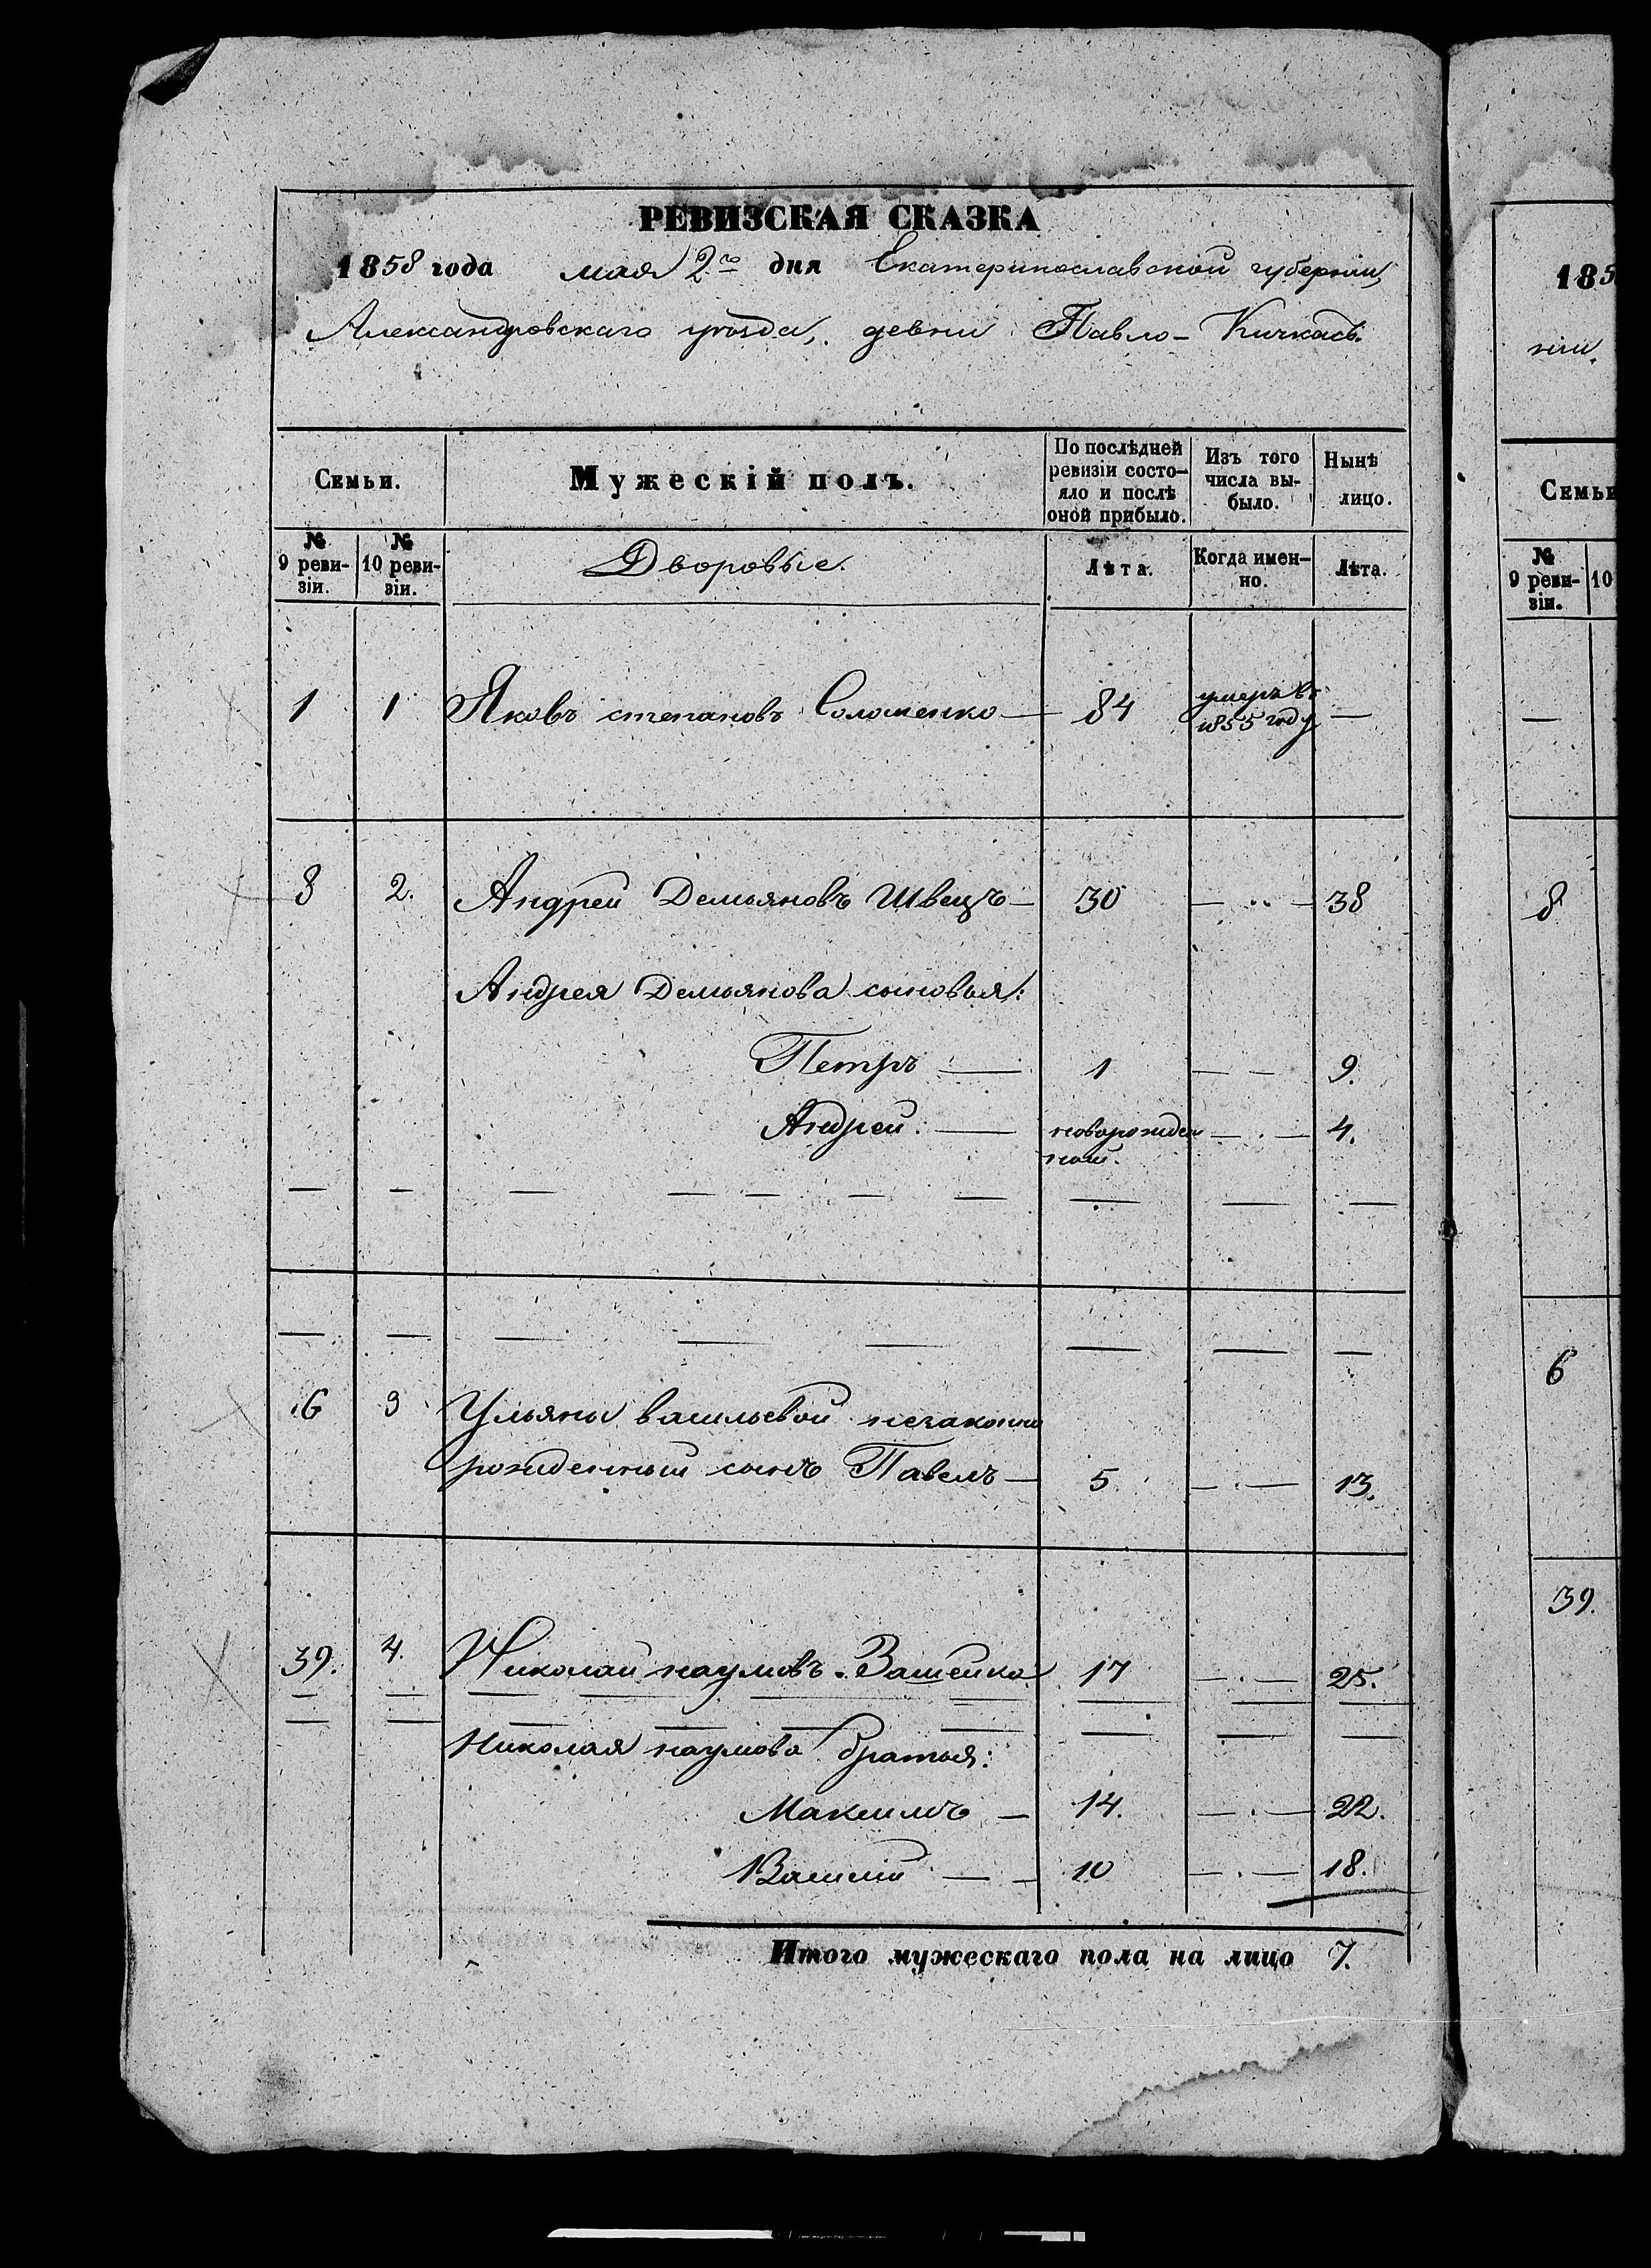 РЕВИЗСКАЯ СКАЗКА
1858 года мая 2го дня Екатеринославской губерніи,
Александровскаго уѣзда, девни Павло-Кичкасъ.
Семьи.
Мужескій полъ.
По послѣдней
ревизіи состо-
яло и послѣ
оной прибыло.
Изъ того
числа вы-
было.
Нынѣ
лицо.
№
9 реви-
зіи.
№
10 реви-
зіи.
Дворовые.
Лѣта.
Когда имен-
но.
Лѣта.
1 1 Яковъ степановъ Соломенко — 84 умеръ въ —
1855 году
8 2. Андрей Демьяновъ Швецъ — 30 — .. — 38
Андрея Демьянова сыновья:
Петръ — 1 — — 9.
Андрей. — новорожден — . — 4.
ный.
6 3 Ульяны васильевой незаконно
рожденный сынъ Павелъ — 5. — . — 13.
39. 4. Николай наумовъ 17 — . — 25.
Николая наумова братья:
Максимъ — 14. — . — 22.
Василій — 10 — . — 18.
Итого мужескаго пола на лицо 7.
185
ніи.
Семьи
№
9 реви-
зіи.
10
—
8
6
39.